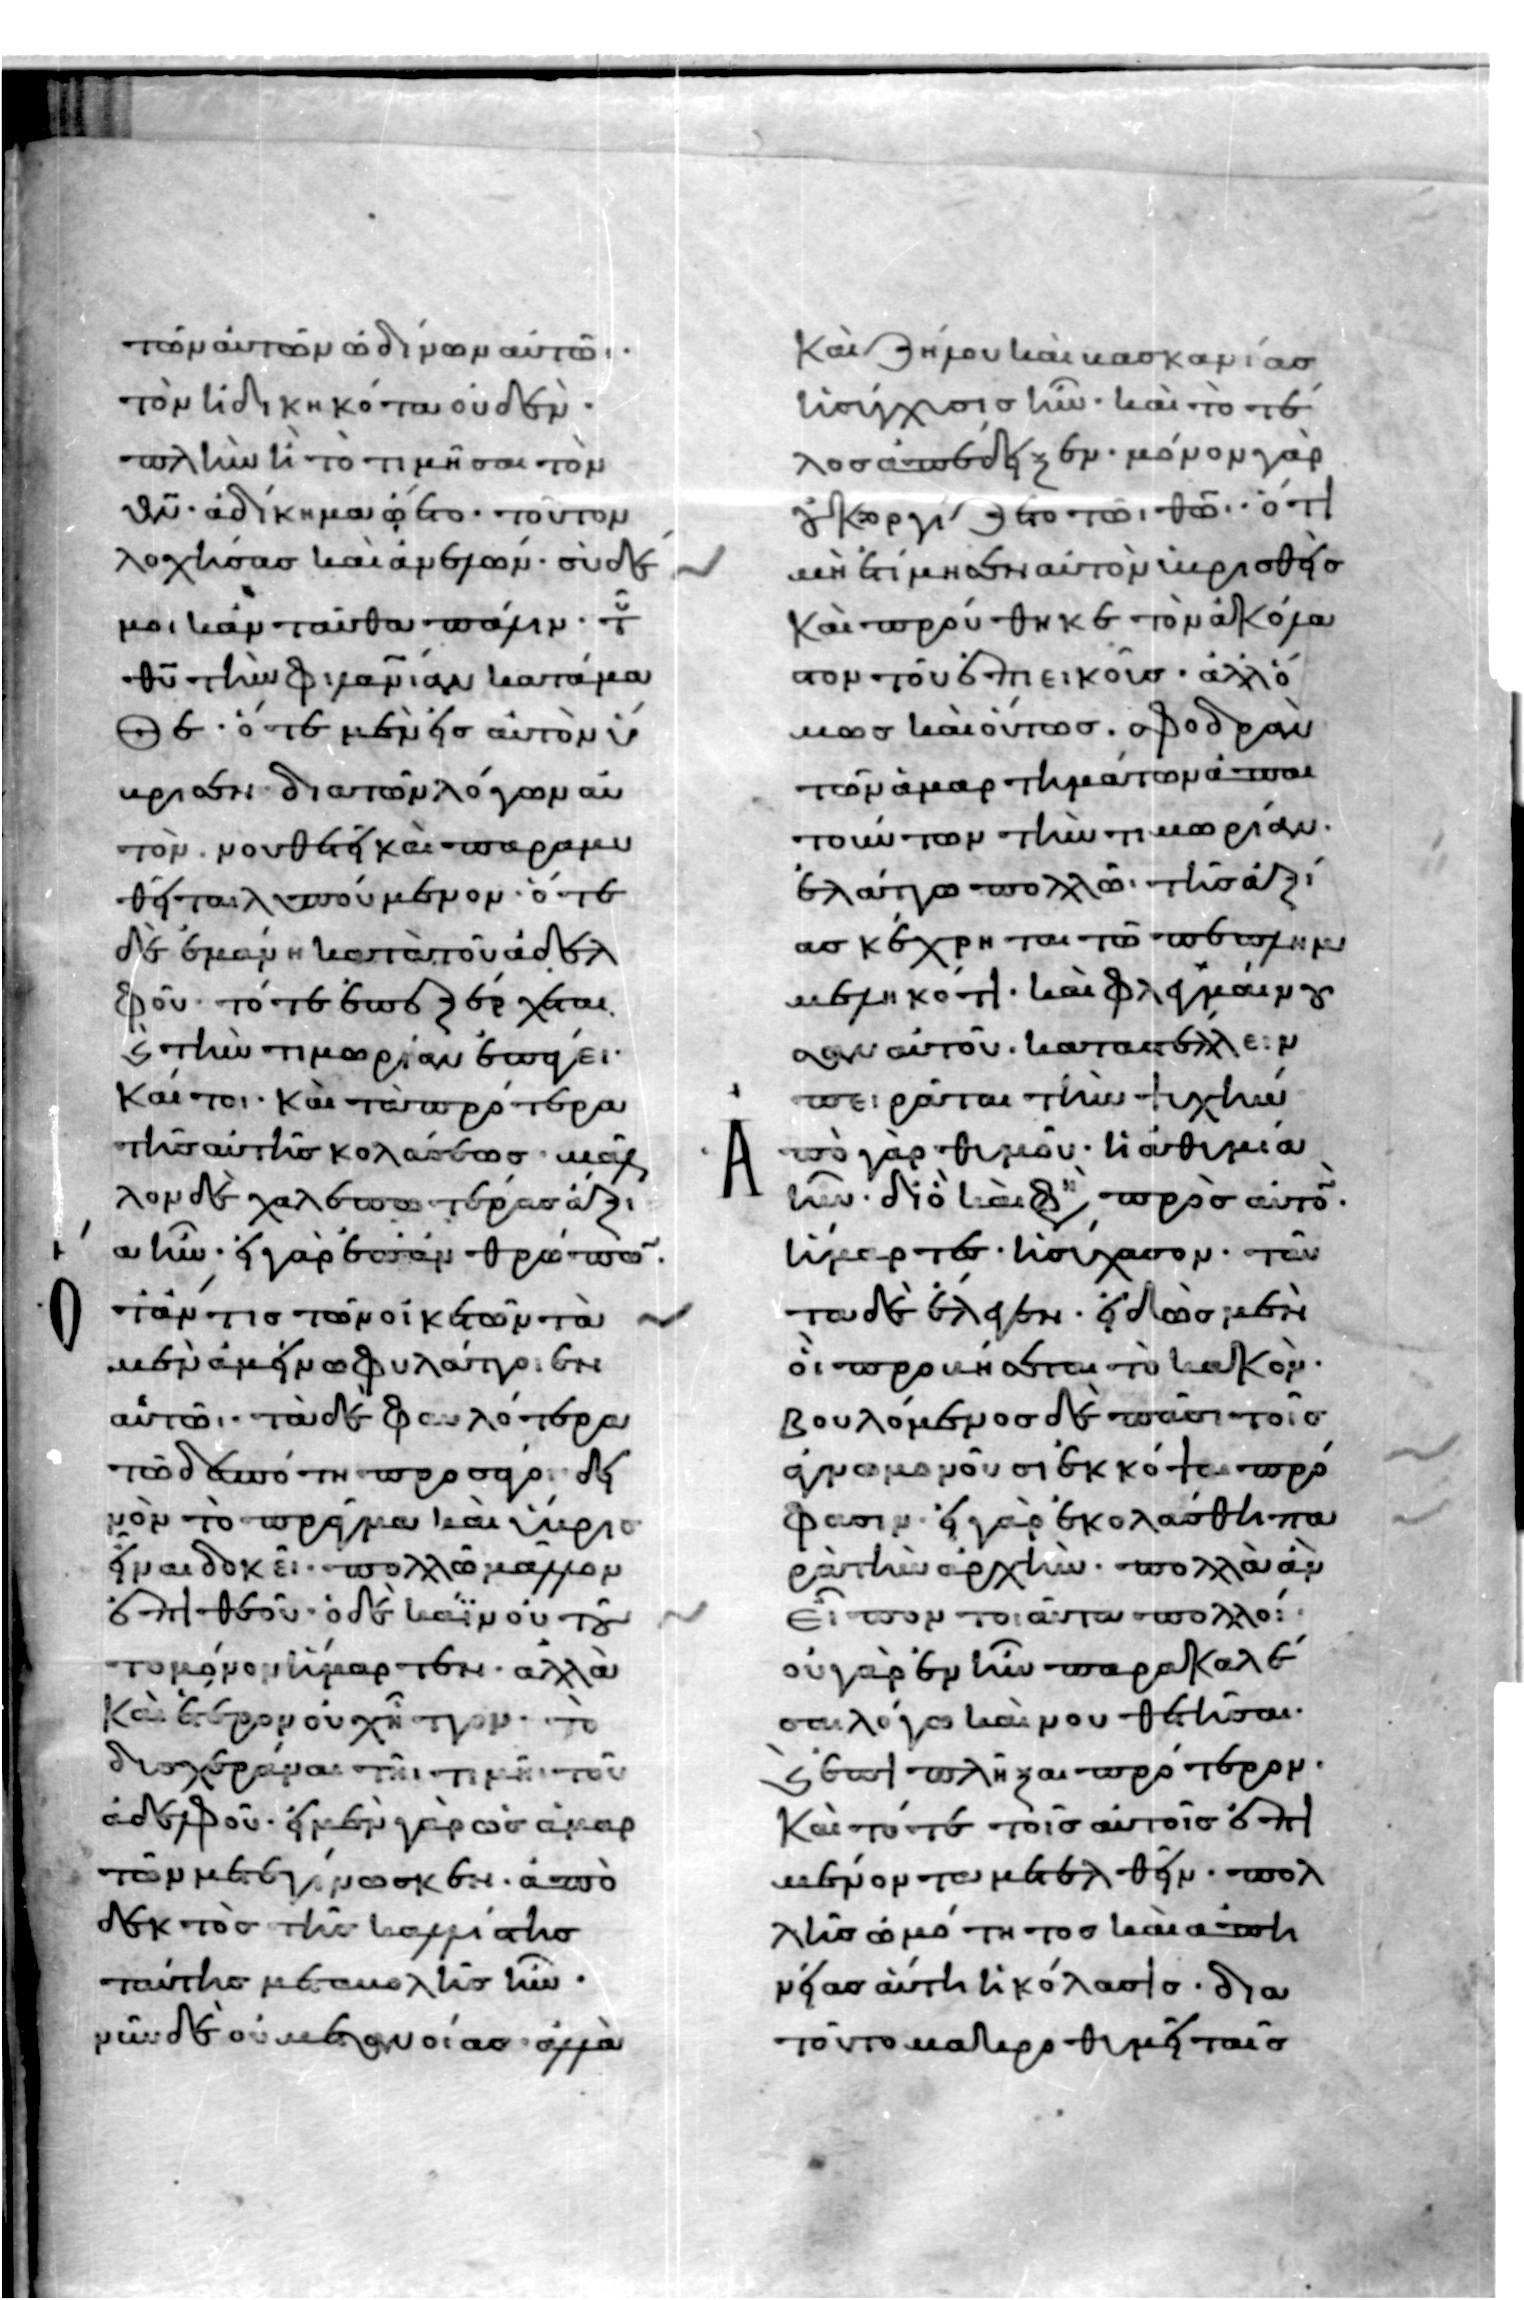 τῶν αὐτῶν ὠδίνων αὐτῶι·
τὸν ἠδικηκότα οὐδὲν·
πλὴν ἢ τὸ τιμῆσαι τὸν
θν̄· ἀδίκημα ᾤετο· τοῦτον
λοχήσας καὶ ἀνελών· σὺ δέ
μοι κἀνταῦθα πάλιν· τοῦ
θῡ τὴν φιλανίαν καταμα
θε· ὅτε μὲν εἰς αὐτὸν ὕ
βρισεν διὰ τῶν λόγων αὐ
τὸν· νουθετεῖ καὶ παραμυ
θεῖται λυπούμενον· ὅτε
δὲ ἐμάνη κατὰ τοῦ ἀδελ
φοῦ· τότε ἐπεξέρχεται
καὶ τὴν τιμωρίαν ἐπάγει·
Καίτοι· καὶ τὰ πρότερα
τῆς αὐτῆς κολάσεως· μᾶλ
λον δὲ χαλεπωτέρας ἄξι
α ἦν· εἰ γὰρ ἐπ' ἀνθρώπων
ὅταν τις τῶν οἰκετῶν τὰ
μὲν ἀμείνω φυλάττοι ἐν
αὐτῶι· τὰ δὲ φαυλότερα
τῷ δεσπότη προσάγοι δει
νὸν τὸ πρᾶγμα καὶ ὕβρις
εἶναι δοκεῖ· πολλῷ μᾶλλον
ἐπὶ θεοῦ· ὁ δὲ κάϊν οὐ τοῦ
το μόνον ἥμαρτεν· ἀλλὰ
Καὶ ἕτερον οὐχ ἧττον· τὸ
δυσχερᾶναι τῆι τιμῆι τοῦ
ἀδελφοῦ· εἰ μὲν γὰρ ὡς ἁμαρ
τῶν μετεγίνωσκεν· ἀπό
δεκτὸς τῆς καλλίστης
ταύτης μεταβολῆς ἦν·
νῦν δὲ οὐ μετανοίας ἀλλὰ
Καὶ ζήλου καὶ βασκανίας
ἡ σύγχυσις ἦν· καὶ τὸ τέ
λος ἀπέδειξεν· μόνον γὰρ
οὐκ ὀργίζετο τῶι θῶ̄ι· ὅτι
μὴ ἐτίμησεν αὐτὸν ὑβρισθεὶς
Καὶ προύθηκε τὸν ἀκόλα
στον τοῦ ἐπιεικοῦς· ἀλλ' ὅ
μως καὶ οὕτως· σφοδρὰν
τῶν ἁμαρτημάτων ἀπαι
τούντων τὴν τιμωρίαν·
ἐλάττω πολλῶι τῆς ἀξί
ας κέχρηται τῷ πεπλημ
μεληκότι· καὶ φλεγμαίνου
σαν αὐτοῦ· καταστέλλειν
πειρᾶται τὴν ψυχὴν
Ἀπὸ γὰρ θυμοῦ· ἡ ἀθυμία
ἦν· διὸ καὶ φησὶ πρὸς αὐτὸν·
ἥμαρτες· ἡσύχασον· ταῦ
τα δὲ ἔλεγεν· εἰδὼς μὲν
οἷ προβήσεται τὸ κακὸν·
Βουλόμενος δὲ πᾶσι τοῖς
ἀγνωμονοῦσι ἐκκόψαι πρό
φασιν· εἰ γὰρ ἐκολάσθη πα
ρὰ τὴν ἀρχὴν· πολλὰ ἂν
Εἶπον τοιαῦτα πολλοί·
οὐ γὰρ ἐνῆν παρακαλέ
σαι λόγω καὶ νουθετῆσαι·
καὶ ἐπιπλῆξαι πρότερον·
Καὶ τότε τοῖς αὐτοῖς ἐπι
μένοντα μετελθεῖν· πολ
λῆς ὠμότητος καὶ ἀπη
νείας αὕτη ἡ κόλασις· διὰ
τοῦτο μακροθυμεῖ ταῖς